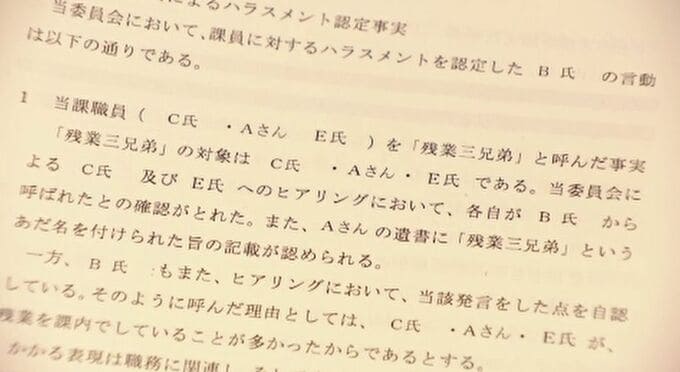 によるハラスメント認定事実
当委員会において、課員に対するハラスメントを認定した B氏 の言動
は以下の通りである。
1 当課職員( C氏 ・Aさん E氏 )を「残業三兄弟」と呼んだ事実
「残業三兄弟」の対象は C氏 ・Aさん・ E氏 である。当委員会に
よる C氏 及び E氏 へのヒアリングにおいて、各自が B氏 から
呼ばれたとの確認がとれた。また、Aさんの遺書に「残業三兄弟」という
あだ名を付けられた旨の記載が認められる。
一方、 B氏 もまた、ヒアリングにおいて、当該発言をした点を自認
している。そのように呼んだ理由としては、 C氏 ・Aさん・ E氏 が、
残業を課内でしていることが多かったからであるとする。
かかる表現は職務に関連し、